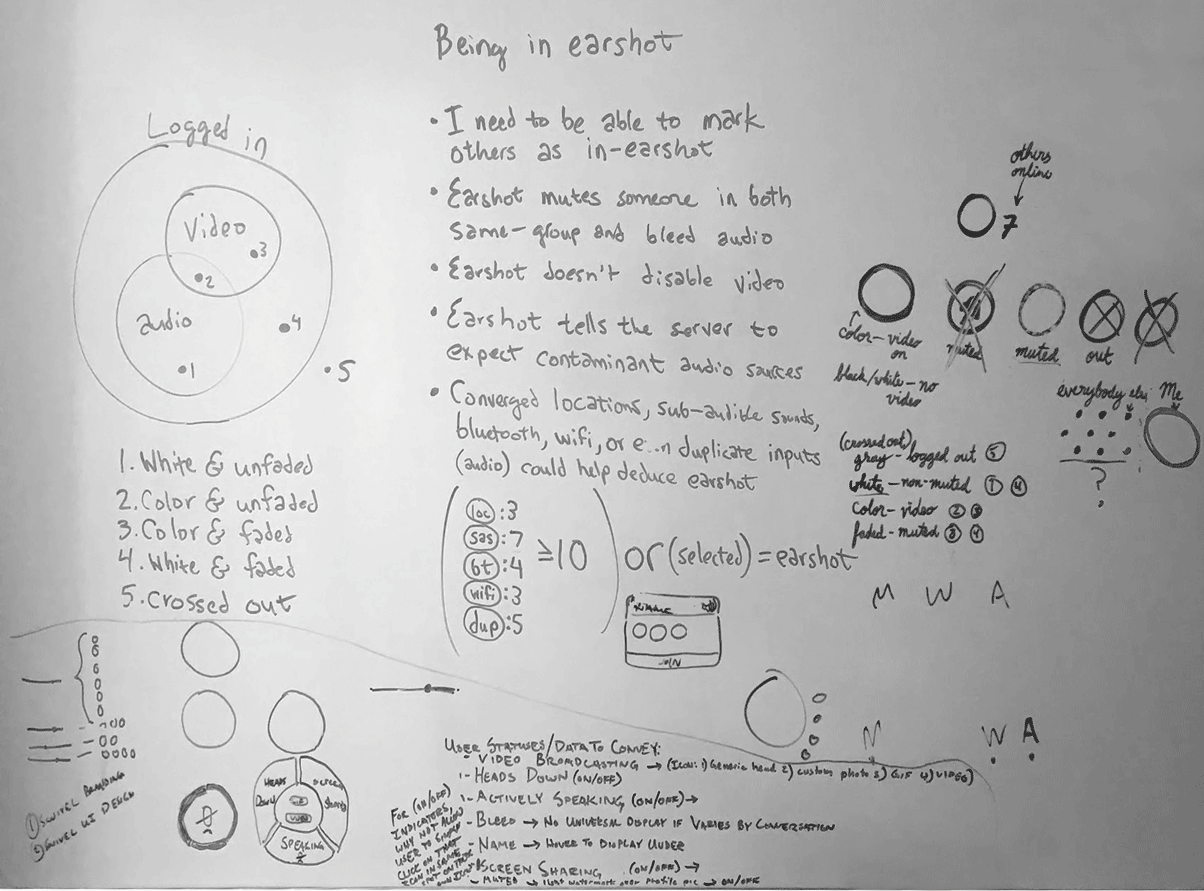 Being in earshot
Logged in
Video
•3
•2
audio
•4
•1
•5
1. White & unfaded
2. Color & unfaded
3. Color & faded
4. White & faded
5. Crossed out
• I need to be able to mark
others as in-earshot
• Earshot mutes someone in both
same-group and bleed audio
• Earshot doesn't disable video
• Earshot tells the server to
expect contaminant audio sources
• Converged locations, sub-audible sounds,
bluetooth, wifi, or duplicate inputs
(audio) could help deduce earshot
loc:3
sas:7
bt:4
wifi:3
dup:5
≥10
or (selected) = earshot
JOIN
others
online
7
color-video
on
muted
muted
out
black/white-no
video
everybody
Me
?
(crossed out)
gray-logged out 5
white-non-muted 1 4
color-video 2 3
faded-muted 3 4
M W A
N
W A
1 Swivel Branding
2 Swivel UI Design
Heads
Down
Screen
Sharing
Speaking
User Statuses/Data To Convey:
- Video Broadcasting → (Icon: 1) Generic head 2) custom photo 3) GIF 4) video)
- Heads Down (on/off)
- Actively Speaking (on/off) →
- Bleed → No Universal Display if Varies by Conversation
- Name → Hover To Display Under
- Screen Sharing (on/off) →
- Muted → light watermark over profile pic → on/off
For (on/off)
indicators,
why not allow
user to simply
click on that
icon in same
spot on their
own icon